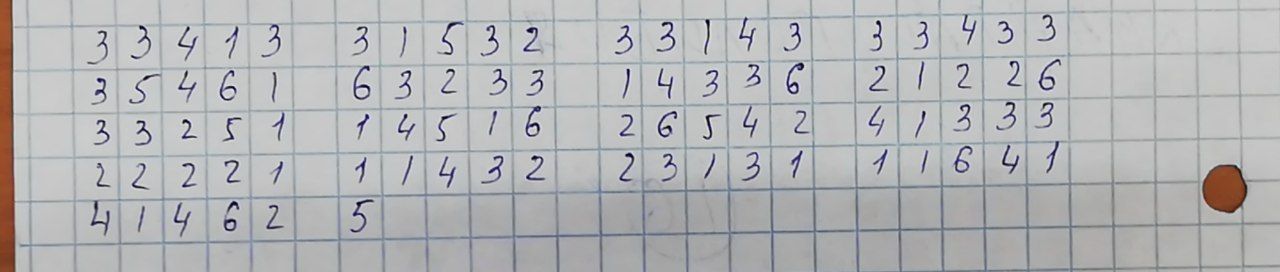 3 3 4 1 3 3 1 5 3 2 3 3 1 4 3 3 3 4 3 3
3 5 4 6 1 6 3 2 3 3 1 4 3 3 6 2 1 2 2 6
3 3 2 5 1 1 4 5 1 6 2 6 5 4 2 4 1 3 3 3
2 2 2 2 1 1 1 4 3 2 2 3 1 3 1 1 1 6 4 1
4 1 4 6 2 5